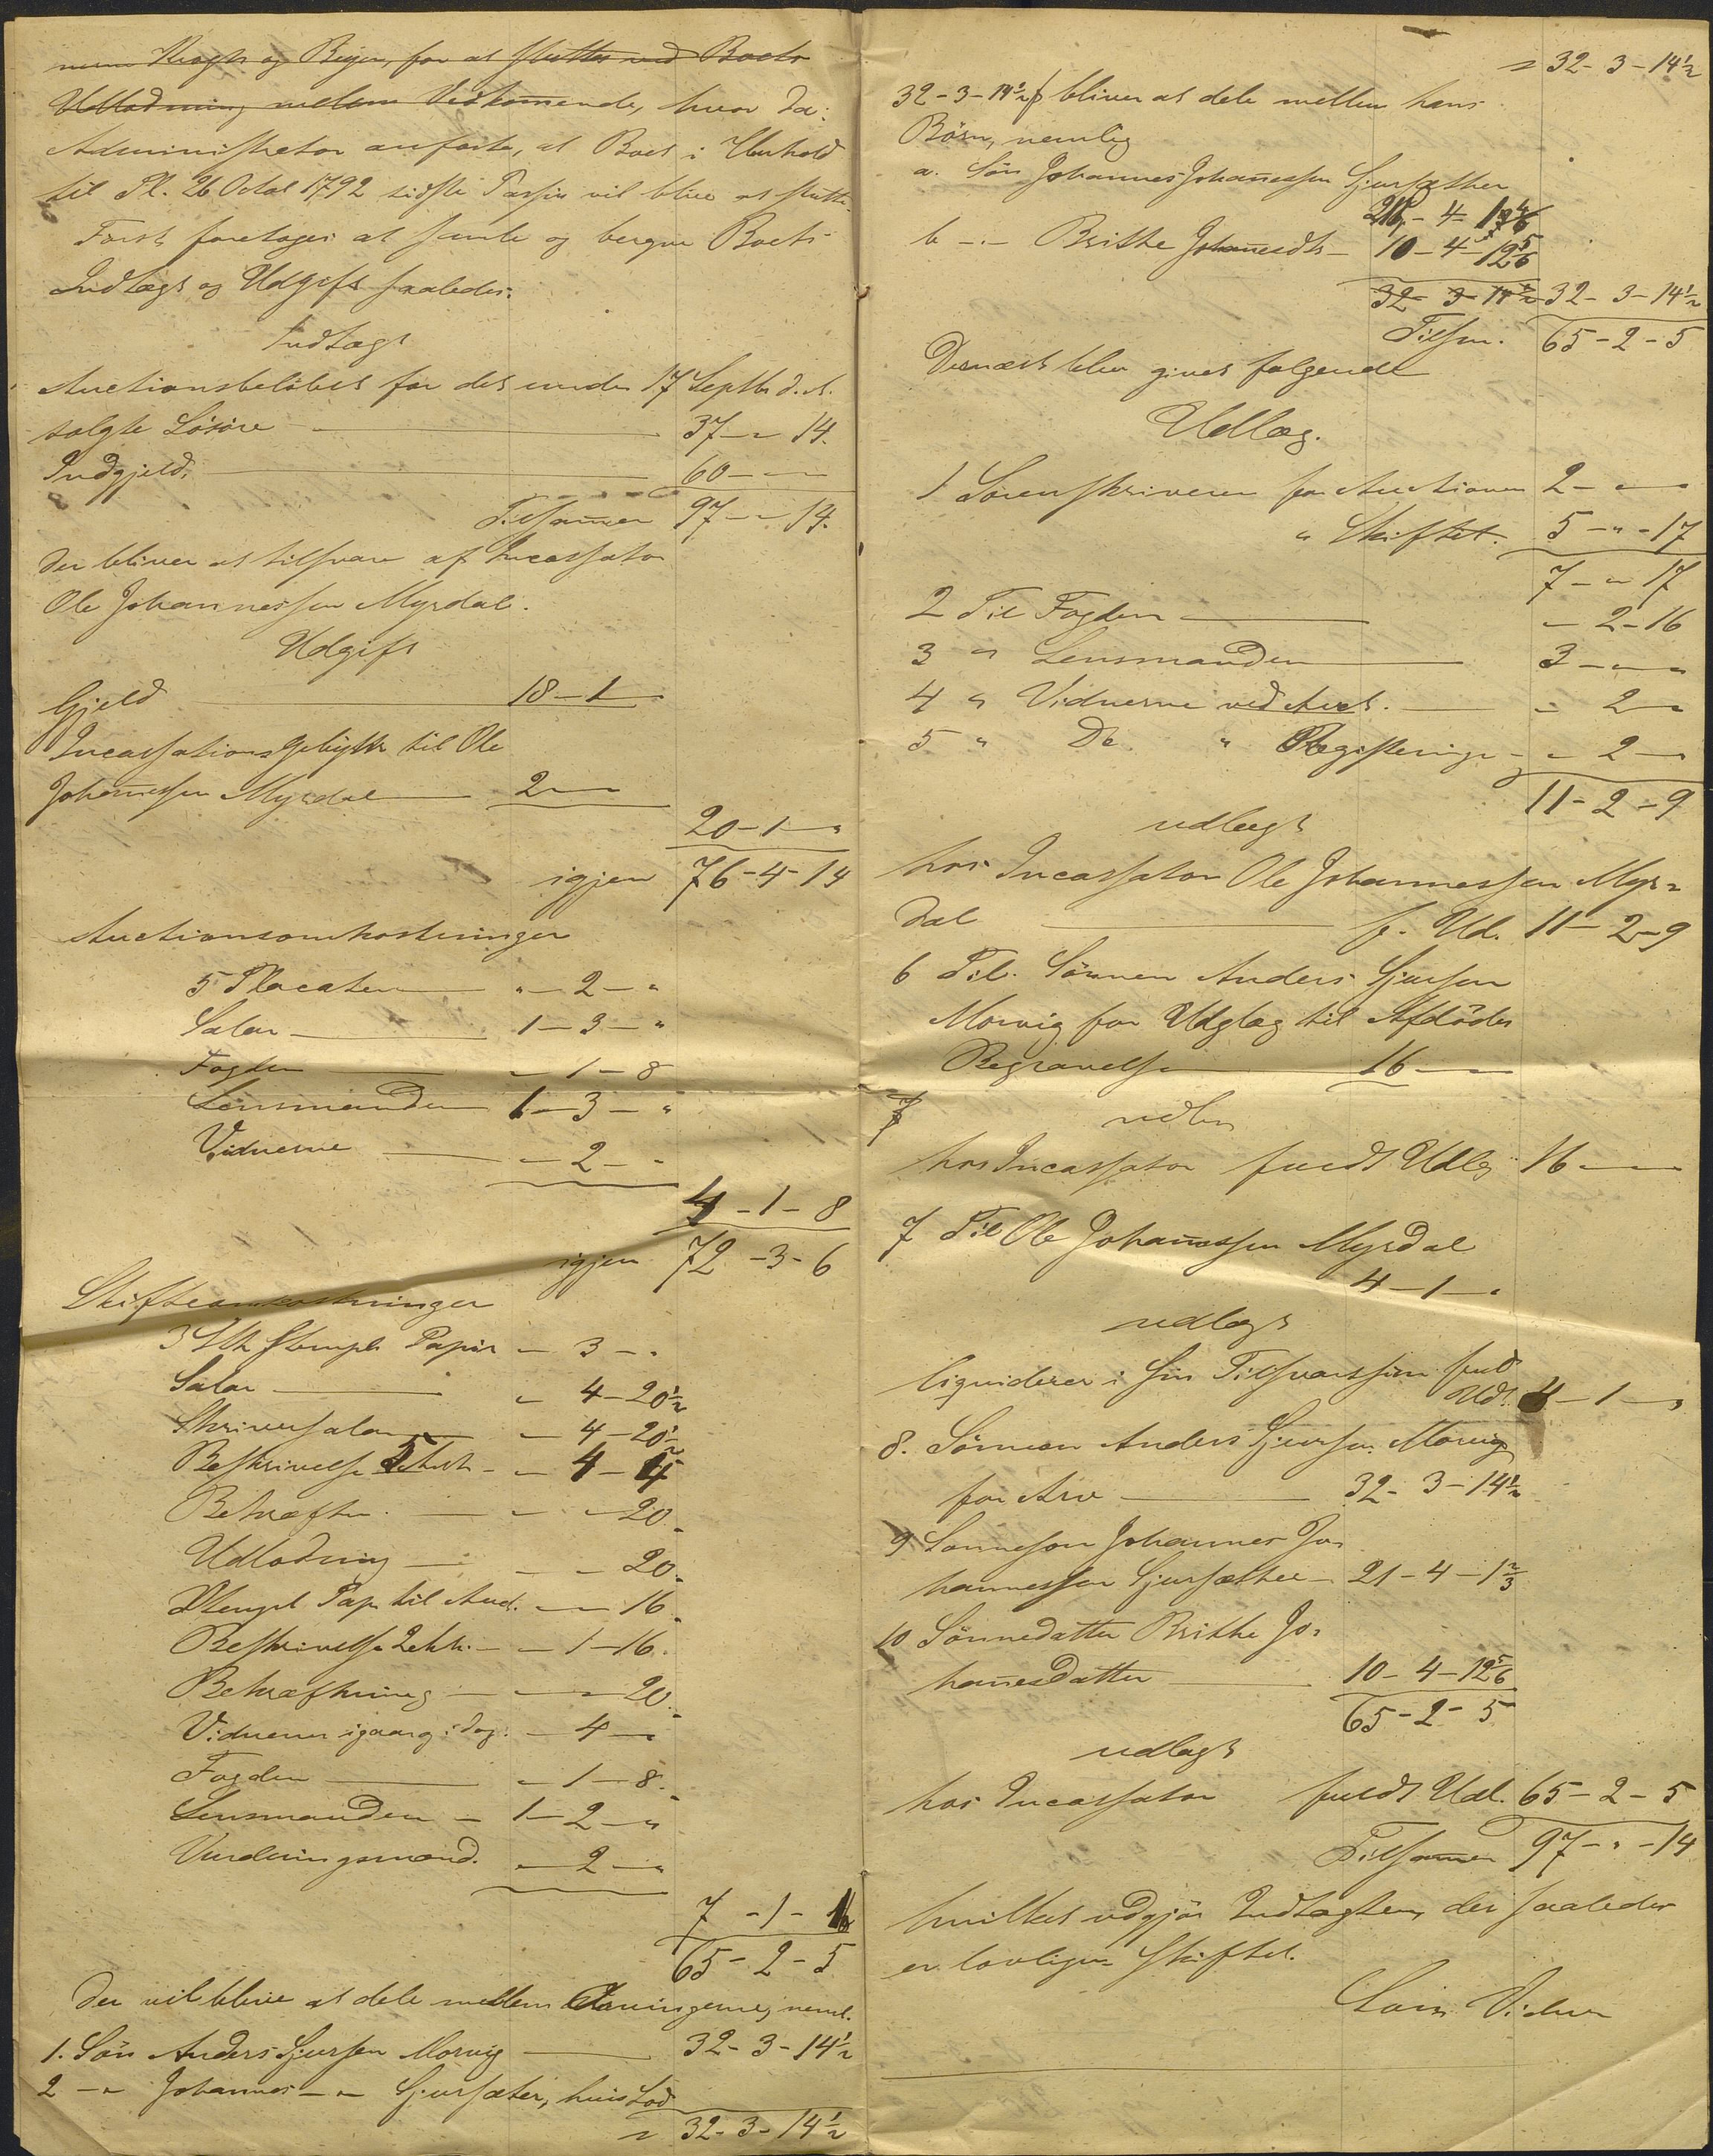 Krogh og Beyer, for at slutte med Boets
Udlodning mellem Vedkommende, hvor da:
Administrator anførte, at Boet i Henhold
til Pl. 26 Octob 1792 sidste Passus vil blive at slutte.
Først foretoges at samle og beregne Boets
Indtægt og Udgift saaledes:
Indtægt
Auctionsbeløbet for det under 17 Septbr d. A.
solgte Løsøre — 37 - " - 14.
Indgjeld. — 60 - " - "
Tilsammen 97 - " - 14.
der bliver at tilsvare af Incassator
Ole Johannessen Myrdal.
Udgift
Gjeld — 18 - 1 - "
Incassationsgebyhr til Ole
Johannessen Myrdal — 2 - " - "
20 - 1 - "
igjen 76 - 4 - 14
Auctionsomkostninger
5 Placater — " - 2 - "
Salar — 1 - 3 - "
Fogden — " - 1 - 8
Lensmanden 1 - 3 - "
Vidnerne — " - 2 - "
4 - 1 - 8
igjen 72 - 3 - 6
Skifteomkostninger
3 Stk Stempl. Papir " - 3 - "
Salar — " - 4 - 20½
Skriversalar — " - 4 - 20½
Beskrivelse 5 Ark - " - 4 - 4
Bekræftn. — " - " - 20.
Udlodning — " - " - 20.
Stempl. Pap. til Auct. " - " - 16.
Beskrivelse 2 Ark. - " - 1 - 16.
Bekræftning — " - " - 20.
Vidnerne igaar og idag. - 4 - "
Fogden — " - 1 - 8.
Lensmanden — 1 - 2 - "
Vurderingsmænd. " - 2 - "
7 - 1 - 1
65 - 2 - 5
Der vil blive at dele mellem Arvingerne, neml.
1. Søn Anders Sjursen Morvig — 32 - 3 - 14½
2 - " Johannes - " - Sjursæter, hvis Lod
" 32 - 3 - 14½
" 32 - 3 - 14½
32 - 3 - 14½ ß bliver at dele mellem hans
Børn, nemlig
a. Søn Johannes Johannessen Sjursæther
21 - 4 - 1 4/6
b - " - Brithe Johannesdtr - 10 - 4 - 12 5/6
32 - 3 - 14½ 32 - 3 - 14½
Tilsm. 65 - 2 - 5
Dernæst blev givet følgende
Udlæg.
1 Sorenskriveren for Auctionen 2 - " - "
" Skiftet. 5 - " - 17
7 - " - 17
2 Til Fogden — " - 2 - 16
3 " Lensmanden — 3 - " - "
4 " Vidnerne ved Auct. — " - 2 - "
5 " Do. " Registeringen - " - 2 - "
11 - 2 - 9
udlagt
hos Incassator Ole Johannessen Myr=
dal — f. Ud. 11 - 2 - 9
6 Til Sønnen Anders Sjursen
Morvig for Udlæg til Afdødes
Begravelse — 16 - " - "
7 udlagt
hos Incassator fuldt Udlæg 16 - " - "
7 Til Ole Johannessen Myrdal
4 - 1 - "
udlagt
liquiderer i sin Tilsvarssum fuld
Udl. 4 - 1 - "
8. Sønnen Anders Sjursen Morvig
for Arv — 32 - 3 - 14½
9 Sønnesøn Johannes Jo=
hannessen Sjursæther - 21 - 4 - 1 2/3
10 Sønnedatter Brithe Jo=
hannesdatter — 10 - 4 - 12 5/6
65 - 2 - 5
udlagt
hos Incassator fuldt Udl. 65 - 2 - 5
Tilsammen 97 - " - 14
hvilket udgjør Indtægten, der saaledes
er lovligen skiftet.